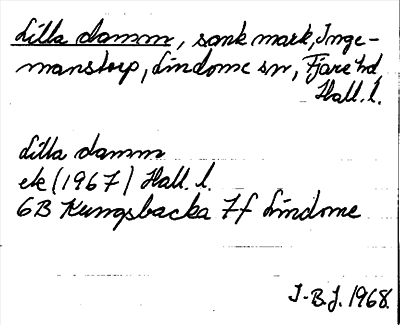 Lilla damm, sank mark, Inge-
manstorp, Lindome sn, Fjäre hd
Hall. l.
Lilla damm
ek (1967) Hall. l.
6B Kungsbacka 7f Lindome
J-B.J. 1968.